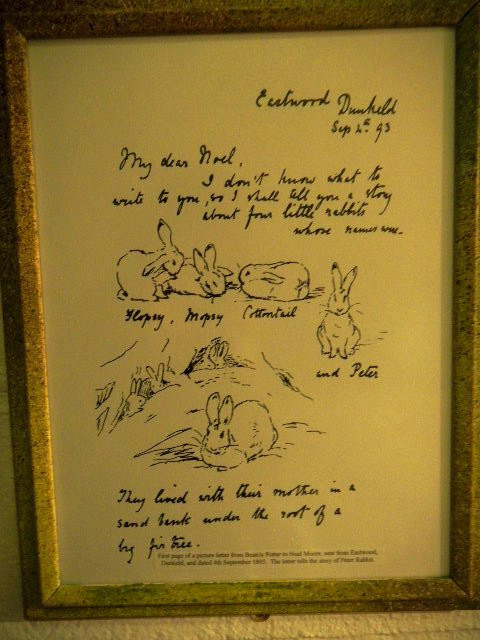 Eastwood Dunkeld
Sep 4th 93
My dear Noel,
I don't know what to
write to you, so I shall tell you a story
about four little rabbits
whose names were.
Flopsy, Mopsy Cottontail
and Peter
They lived with their mother in a
sand bank under the root of a
big fir tree.
First page of a picture letter from Beatrix Potter to Noel Moore, sent from Eastwood,
Dunkeld, and dated 4th September 1893. The letter tells the story of Peter Rabbit.